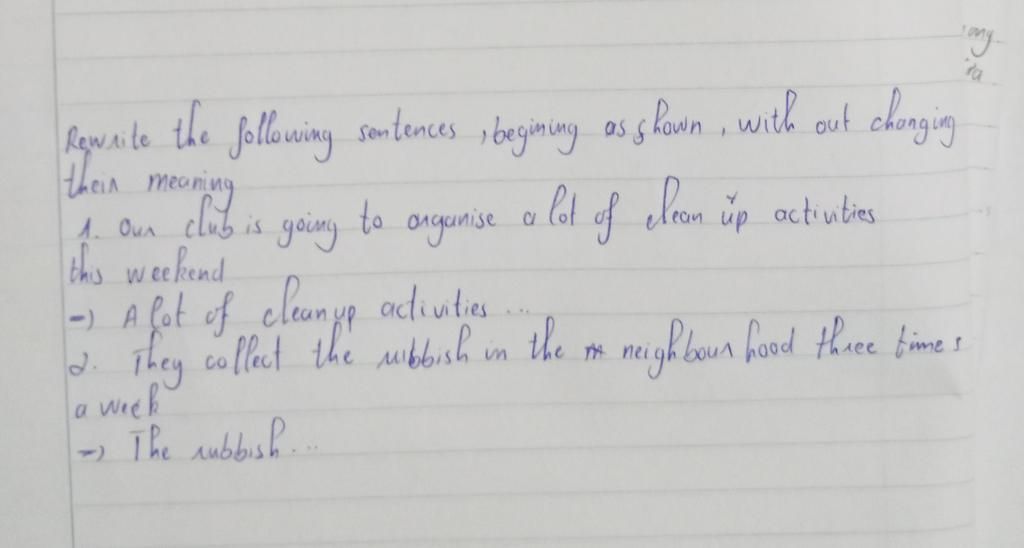 Rewrite the following sentences, begining as shown, with out changing
their meaning
1. Our club is going to organise a lot of clean up activities
this weekend
-) A lot of clean up activities ...
2. They collect the rubbish in the neighbour hood three times
a week
-) The rubbish...